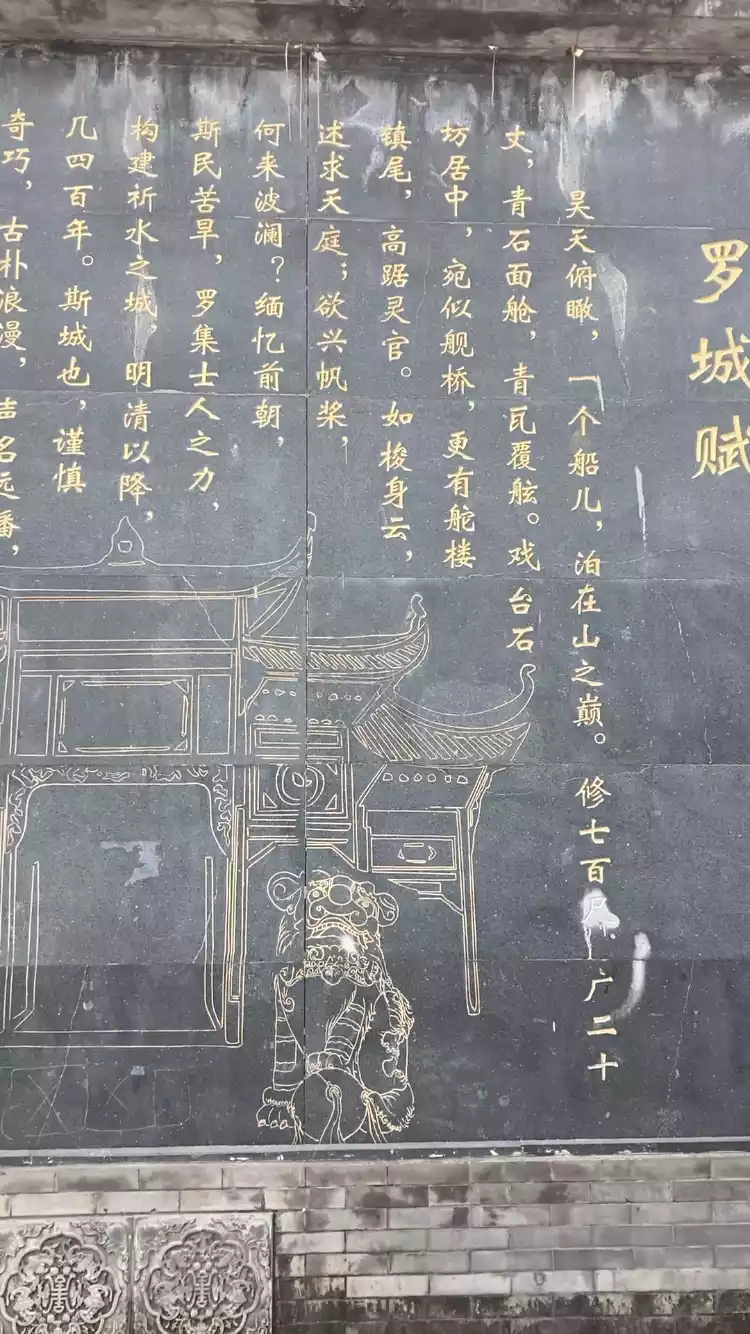 罗城赋
昊天俯瞰，一个船儿，泊在山之巅。修七百尺，广二十
丈，青石面舱，青瓦覆舷。戏台石
坊居中，宛似舰桥，更有舵楼
镇尾，高踞灵官。如梭身云，
述求天庭；欲兴帆桨，
何来波澜？缅忆前朝，
斯民苦旱，罗集士人之力，
构建祈水之城，明清以降，
几四百年。斯城也，谨慎
奇巧，古朴浪漫，声名远播，